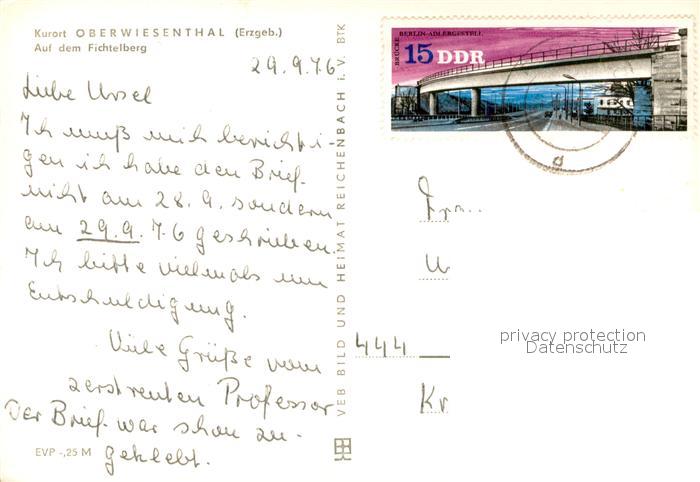 Kurort OBERWIESENTHAL (Erzgeb.)
Auf dem Fichtelberg
29.9.76
Liebe Ursel
Ich muß mich berichti-
gen ich habe den Brief
nicht am 28.9. sondern
am 29.9.76 geschrieben.
Ich bitte vielmals um
Entschuldigung.
Viele Grüße vom
zerstreuten Professor
Der Brief war schon zu-
geklebt.
EVP -,25 M
VEB BILD UND HEIMAT REICHENBACH i. V. BTK
BRÜCKE BERLIN-ADLERGESTELL
15 DDR
Fra..
U
444
Kr
privacy protection
Datenschutz